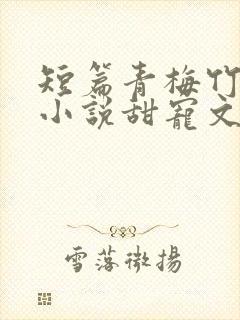 短篇青梅竹
小説甜寵文
雪落微揚